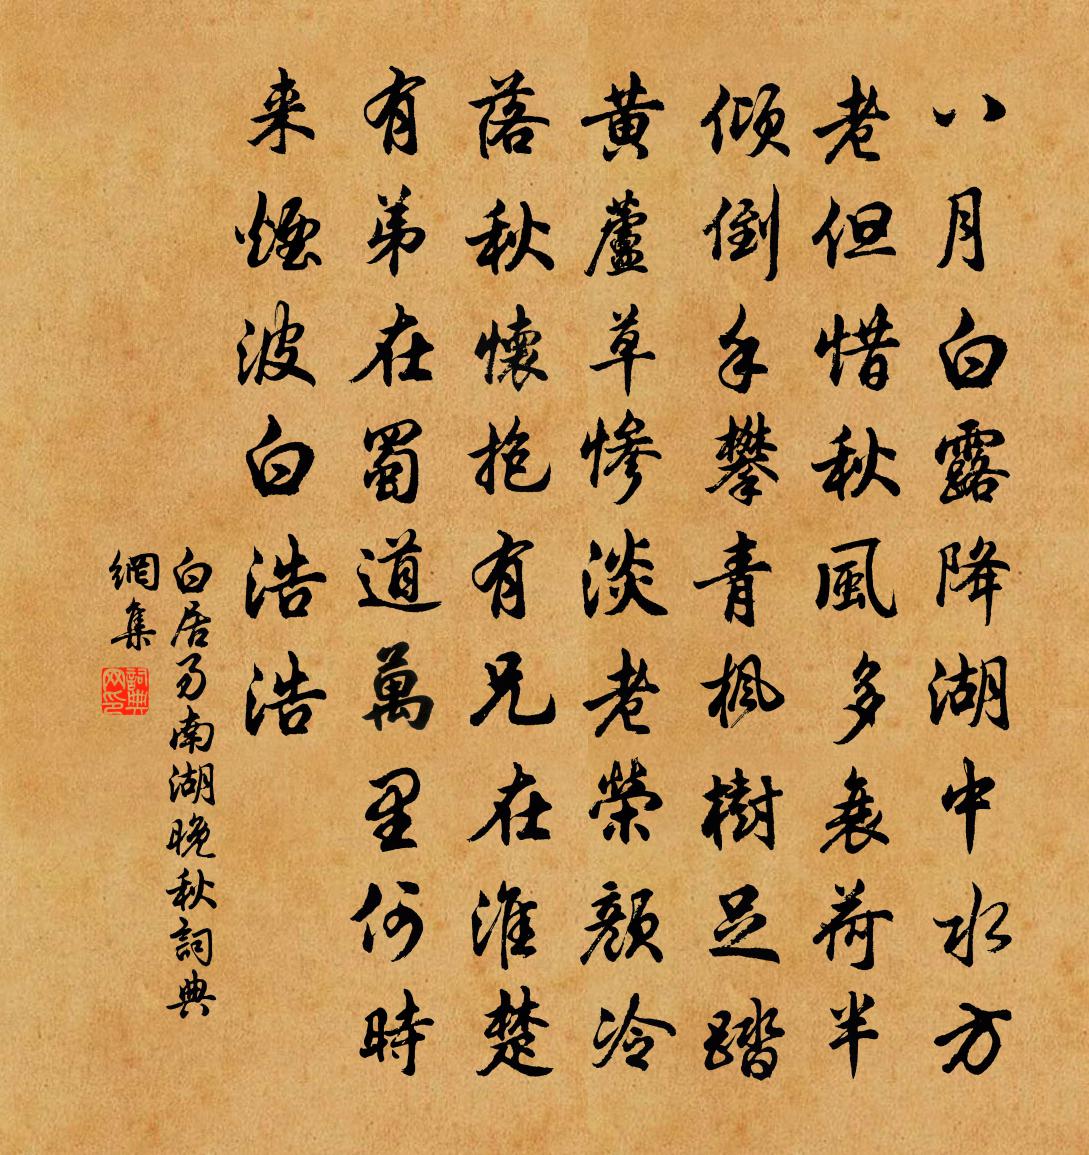 八月白露降湖中水方
老但惜秋風多衰荷半
傾倒手攀青楓樹足踏
黃蘆草慘淡老榮顏冷
落秋懷抱有兄在淮楚
有弟在蜀道萬里何時
来煙波白浩浩
白居易南湖晚秋詞典
網集
詞典
网印